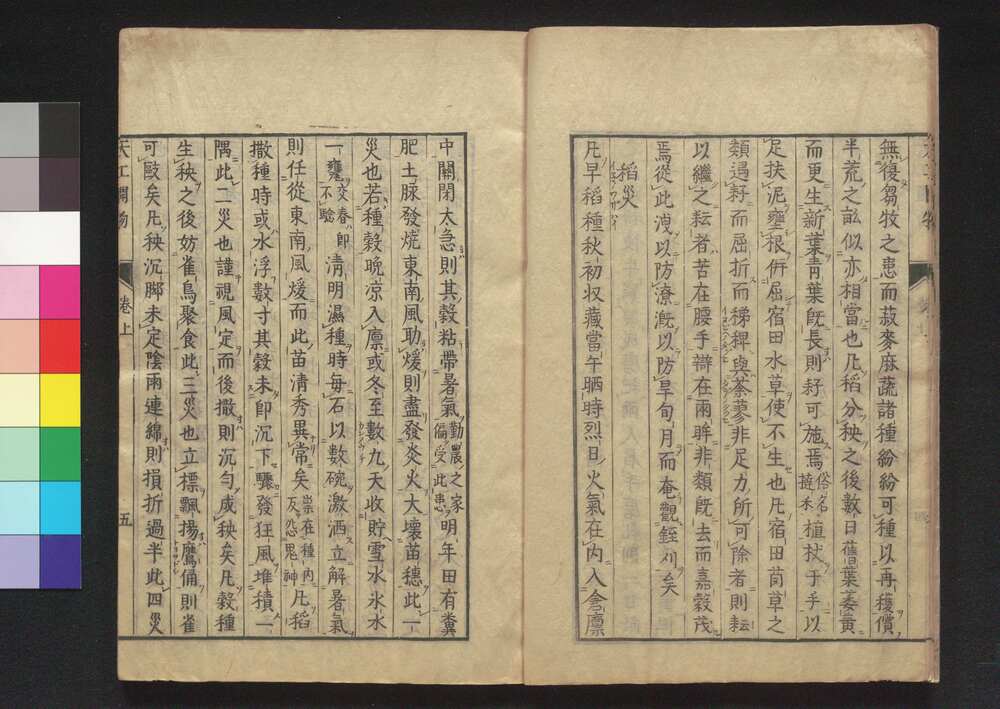 無復芻牧之患而菽麥麻蔬諸種紛紛可種以再穫償
半荒之畝似亦相當也凡稻分秧之後數日舊葉萎黃
而更生新葉青葉既長則耔可施焉俗名撻禾植杖于手以
足扶泥壅根併屈宿田水草使不生也凡宿田茵草之
類遇耔而屈折而稊稗與荼蓼非足力所可除者則耘
以繼之耘者苦在腰手辯在兩眸非類既去而嘉穀茂
焉從此洩以防潦溉以防旱旬月而奄觀銍刈矣
稻災
凡早稻種秋初收藏當午晒時烈日火氣在内入倉廩
中關閉太急則其穀粘帶暑氣勤農之家偏受此患明年田有糞
肥土脉發燒東南風助煖則盡發炎火大壞苗穗此一
災也若種穀晚凉入廩或冬至數九天收貯雪水氷水
一甕交春即不驗清明濕種時每石以數碗激洒立解暑氣
則任從東南風煖而此苗清秀異常矣祟在種内反怨鬼神凡稻
撒種時或水浮數寸其穀未即沉下驟發狂風堆積一
隅此二災也謹視風定而後撒則沉勻成秧矣凡穀種
生秧之後妨雀鳥聚食此三災也立標飄揚鷹俑則雀
可敺矣凡秧沉脚未定陰雨連綿則損折過半此四災
天工開物 卷上 五